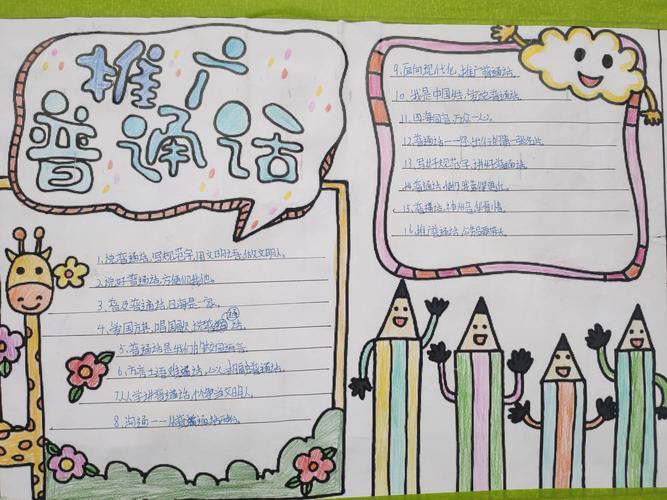 推广
普通话
1.说普通话,写规范字,用文明语,做文明人。
2.说好普通话,方便你我他。
3.普及普通话,四海是一家。
4.爱国旗,唱国歌,说普通话。
5.普通话是我们的校园语言。
6.方言土语难通话,心心相印普通话。
7.人人学讲普通话,个个争当文明人。
8.沟通——从普通话开始。
9.面向现代化,推广普通话。
10.我是中国娃,爱说普通话。
11.四海同音,万众一心。
12.普通话——你我的第一张名片。
13.写好规范字,讲好普通话。
14.普通话,使你我靠得更近。
15.普通话,神州音,华夏情。
16.推广普通话